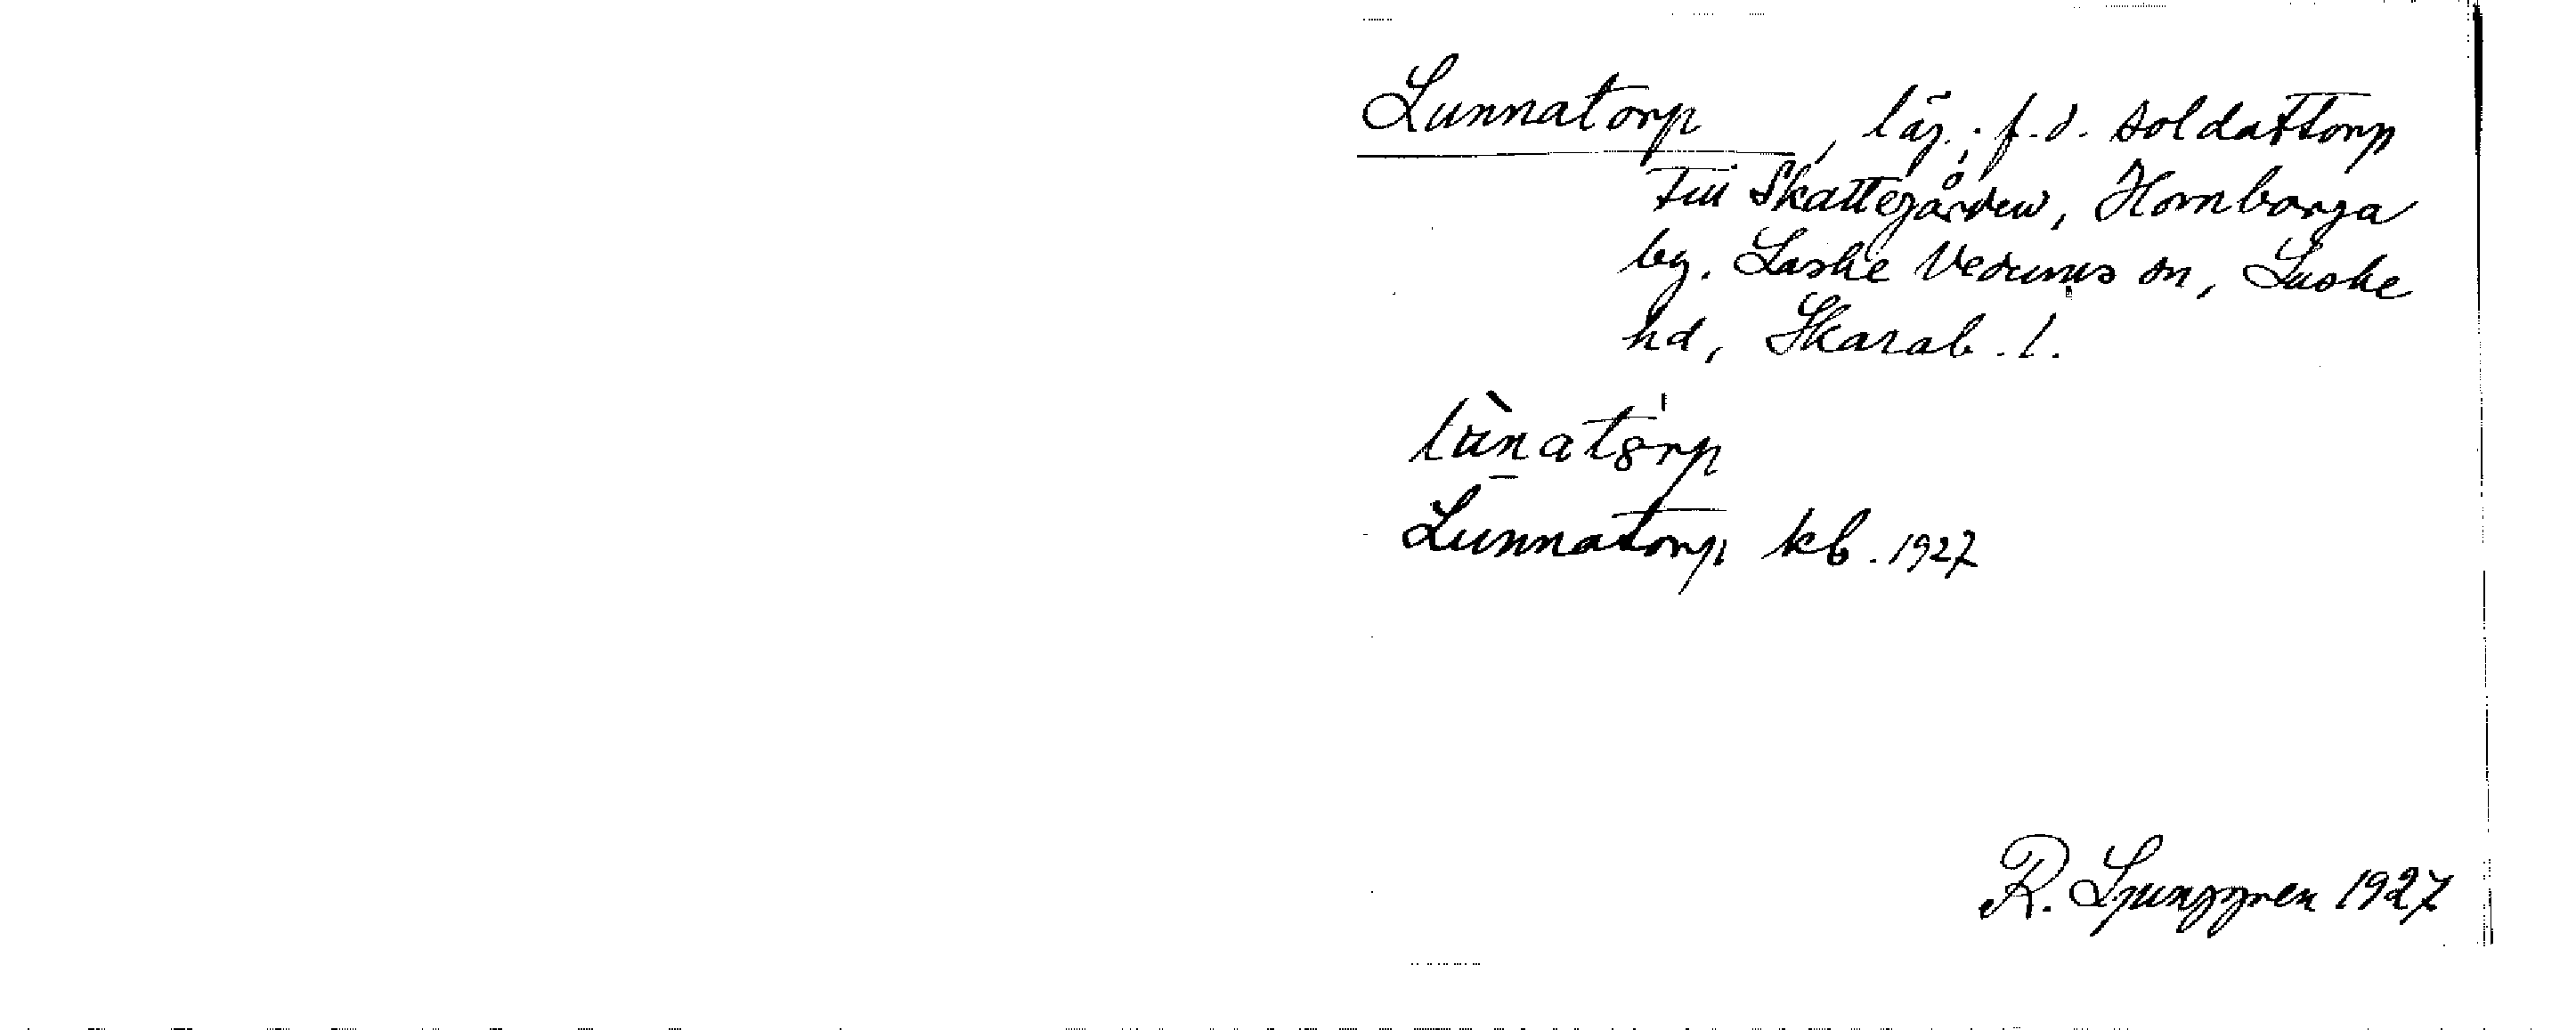 Lunnatorp, läg.; f.d. soldattorp
till Skattegården, Hornborga
by, Laske Vedums sn, Laske
hd, Skarab. l.
Lunnatorp kb. 1927
R. Ljunggren 1927